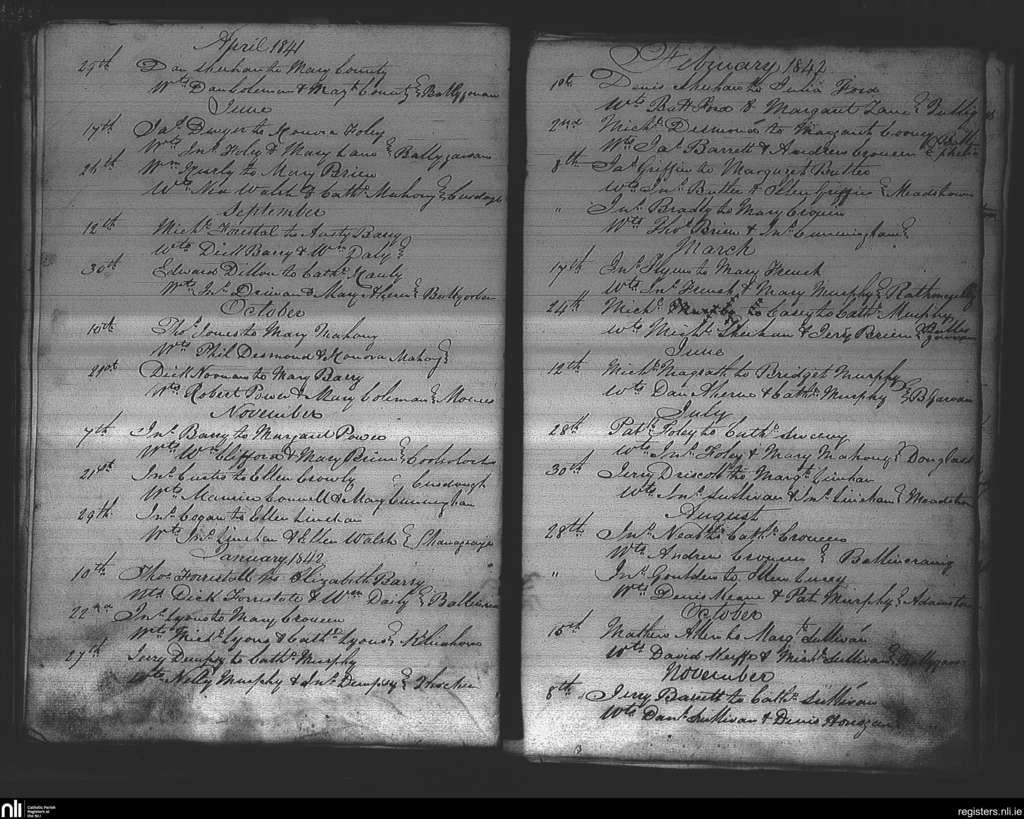 April 1841
29th Dan Sheehan to Mary County
Wts Dan Coleman & Magt County Ballygarvan
June
17th Jas Dwyer to Honora Foley
Wts Jno Foley & Mary Lane Ballygarvan
26th Wm to Mary Brien
Wts Walsh & Cathe Mahony
September
12th Michl Forestal to Ansty Barry
Wts Dick Barry & Wm Daly
30th Edward Dillon to Cathe
Wts Jno & Mary Ahern
October
10th Thos Jones to Mary Mahony
Wts Phil Desmond & Honora Mahony
21st Dick Noonan to Mary Barry
Wts Robert Power & Mary Coleman
November
7th Jno Barry to Margaret Power
Wts Wm Clifford & Mary Brien
21st Jno Curtis to Ellen Crowly
Wts Maurice Connell & Mary Cunningham
29th Jno Cogan to Ellen Linehan
Wts Jno Linehan & Ellen Walsh
January 1842
10th Thos Forrestall to Elizabeth Barry
Wts Dick Forrestall & Wm Daily
22nd Jno Lyons to Mary Croneen
Wts Michl Lyons & Cathe Lyons
27th Jerry Dempsy to Cathe Murphy
Wts Nelly Murphy & Jno Dempsy
February 1842
1st Denis Sheehan to Julia Ford
Wts Batt Ford & Margaret Lane
2nd Michl Desmond to Margaret Cooney
Wts Jas Barrett & Andrew Croneen
8th Jas Griffin to Margaret Butler
Wts Jno Butler & Ellen Griffin Meadstown
" Jno Bradly to Mary
Wts Thos Brien & Jno Cunningham
March
17th Jno Flynn to Mary French
Wts Jno French & Mary Murphy
24th Michl Casey to Cathe Murphy
Wts Sheehan & Jery Brien
June
12th Michl Magrath to Bridget Murphy
Wts Dan Aherne & Cathe Murphy B Garvan
July
28th Patk Foley to Cathe Sweeny
Wts Jno Foley & Mary Mahony Douglass
30th Jerry Driscoll to Margt Linehan
Wts Jno Sullivan & Jno Linehan
August
28th Jno to Cathe Croneen
Wts Andrew Croneen
" Jno Goulden to Ellen Lucey
Wts Denis Meane & Pat Murphy
October
15th Mathew Ahern to Margt Sullivan
Wts David Keeffe & Michl Sullivan
November
8th Jerry Barrett to Cathe Sullivan
Wts Danl Sullivan & Denis Horgan
nli
Catholic Parish
Registers at
the NLI
registers.nli.ie